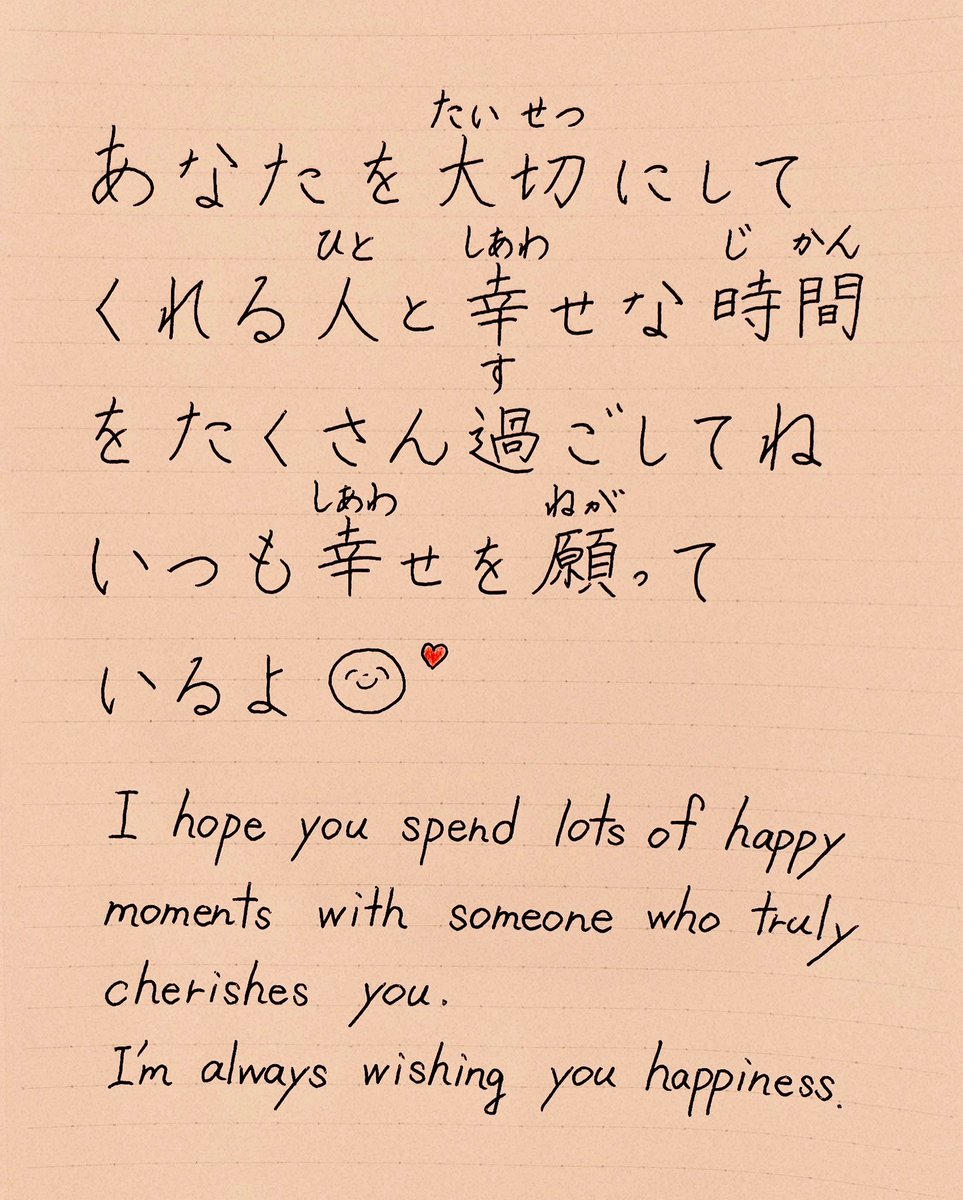 たい せつ
あなたを大切にして
ひと しあわ じ かん
くれる人と幸せな時間
す
をたくさん過ごしてね
しあわ ねが
いつも幸せを願って
いるよ
I hope you spend lots of happy
moments with someone who truly
cherishes you.
I'm always wishing you happiness.